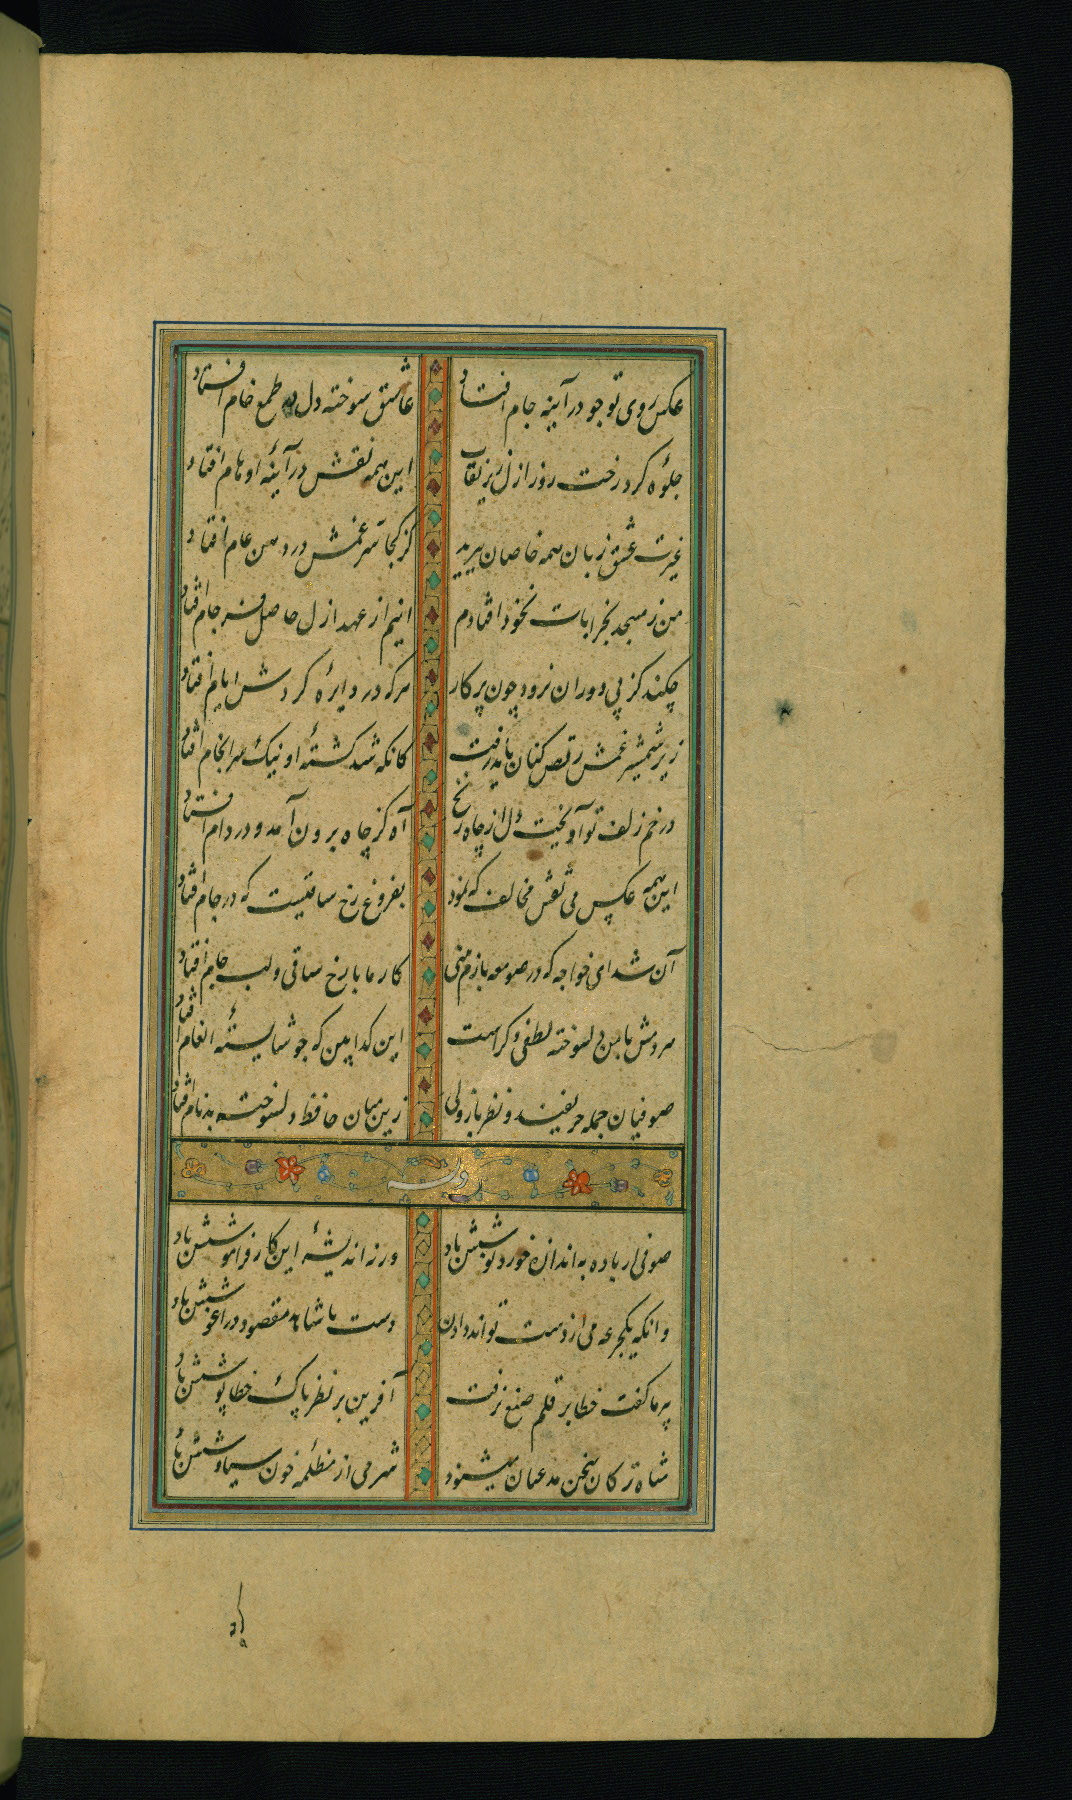 عکس روی تو چو در آینه جام افتاد عاشق سوخته دل در طمع خام افتاد
جلوهٔ کرد رخت روز ازل زیر نقاب این همه نقش در آئینه اوهام افتاد
غیرت عشق زبان همه خاصان ببرید کز کجا سر غمش در دهن عام افتاد
من ز مسجد بخرابات نه خود افتادم اینم از عهد ازل حاصل فرجام افتاد
چکند کز پی دوران نرود چون پرکار هر که در دایرهٔ کردش ایام افتاد
زیر شمشیر غمش رقص کنان باید رفت کانکه شد کشتهٔ او نیک سرانجام افتاد
در خم زلف تو آویخت دل از چاه زنخ آه کز چاه برون آمد و در دام افتاد
این همه عکس می و نقش مخالف که نمود یک فروغ رخ ساقیست که در جام افتاد
آن شد ای خواجه که در صومعه بازم بینی کار ما با رخ ساقی و لب جام افتاد
هر دمش با من دلسوخته لطفی دکر است این کدا بین که چه شایستهٔ انعام افتاد
صوفیان جمله حریفند و نظرباز ولی زین میان حافظ دلسوخته بدنام افتاد
وله
صوفی ار باده به اندازه خورد نوشش باد ور نه اندیشهٔ این کار فراموشش باد
وانکه یکجرعه می از دست تواند دادن دست با شاهد مقصود در آغوشش باد
پیر ما کفت خطا بر قلم صنع نرفت آفرین بر نظر پاک خطاپوشش باد
شاه ترکان سخن مدعیان میشنود شرمی از مظلمه خون سیاوشش باد